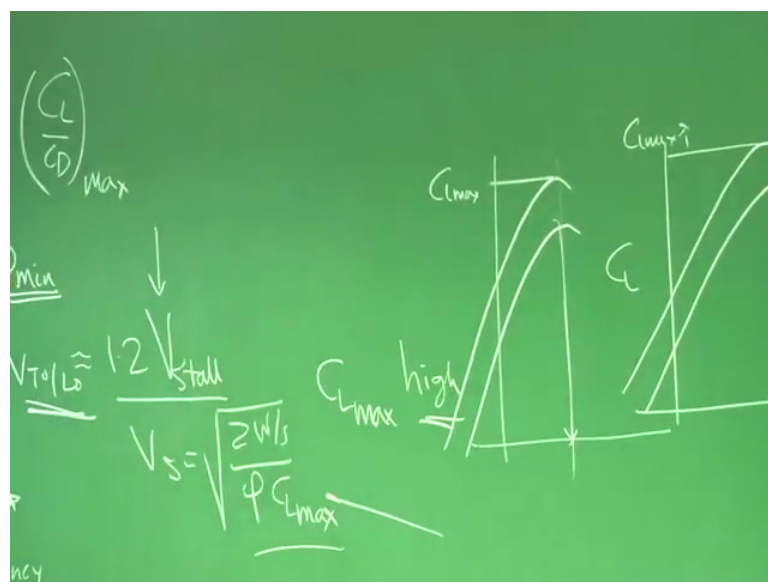 (C_L/C_D)max
min
V_TO/LD ≈ 1.2 V_stall
V_s = √(2W/s / ρ C_Lmax)
C_Lmax high
C_Lmax
C_Lmax↑
C_L
ncy